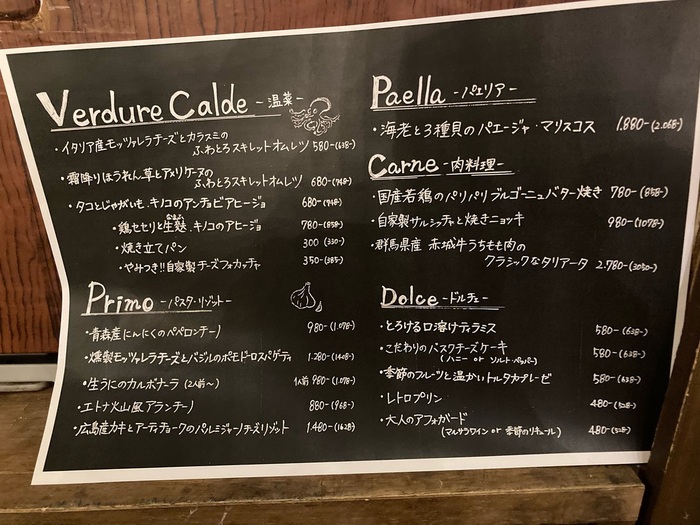 Verdure Calde -温菜-
・イタリア産モッツァレラチーズとカラスミの
ふわとろスキレットオムレツ 580-(638-)
・霜降りほうれん草とアメリケーヌの
ふわとろスキレットオムレツ 680-(748-)
・タコとじゃがいも、キノコのアンチョビアヒージョ 680-(748-)
・鶏セセリと生麩、キノコのアヒージョ 780-(858-)
・焼き立てパン 300 (330-)
・やみつき!!自家製チーズフォカッチャ 350-(385-)
Primo -パスタ・リゾット-
・青森産にんにくのペペロンチーノ 980-(1.078-)
・燻製モッツァレラチーズとバジルのポモドーロスパゲティ 1.280-(1408-)
・生うにのカルボナーラ (2人前〜) 1人前 980-(1.078-)
・エトナ火山風アランチーノ 880-(968-)
・広島産カキとアーティチョークのパルミジャーノチーズリゾット 1.480-(1628-)
Paella -パエリア-
・海老と3種貝のパエージャ・マリスコス 1.880-(2.068-)
Carne -肉料理-
・国産若鶏のパリパリブルゴーニュバター焼き 780-(858-)
・自家製サルシッチャと焼きニョッキ 980-(1078-)
・群馬県産 赤城牛うちもも肉の
クラシックなタリアータ 2.780-(3050-)
Dolce -ドルチェ-
・とろける口溶けティラミス 580-(638-)
・こだわりのバスクチーズケーキ 580-(638-)
(ハニー or ソルト・ペッパー)
・季節のフルーツと温かいトルタカプレーゼ 580-(638-)
・レトロプリン 480-(528-)
・大人のアフォガード 480-(528-)
(マルサラワイン or 季節のリキュール)